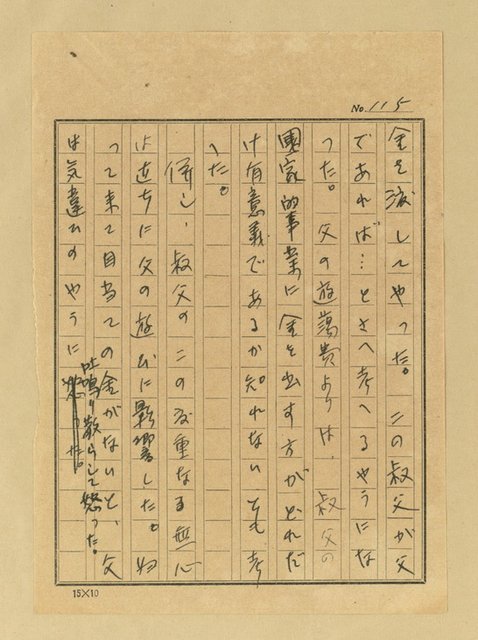 No. 115
金を渡してやった。この叔父が父
であれば…とさへ考へるやうにな
った。父の遊蕩費よりは、叔父の
國家的事業に金を出す方がどれだ
け有意義であるか知れないとも考
へた。
併し、叔父のこの度重なる無心
は直ちに父の遊びに影響した。
って来て目当ての金がないと、父
は気違ひのやうに
吐鳴り散らして怒った。
15×10